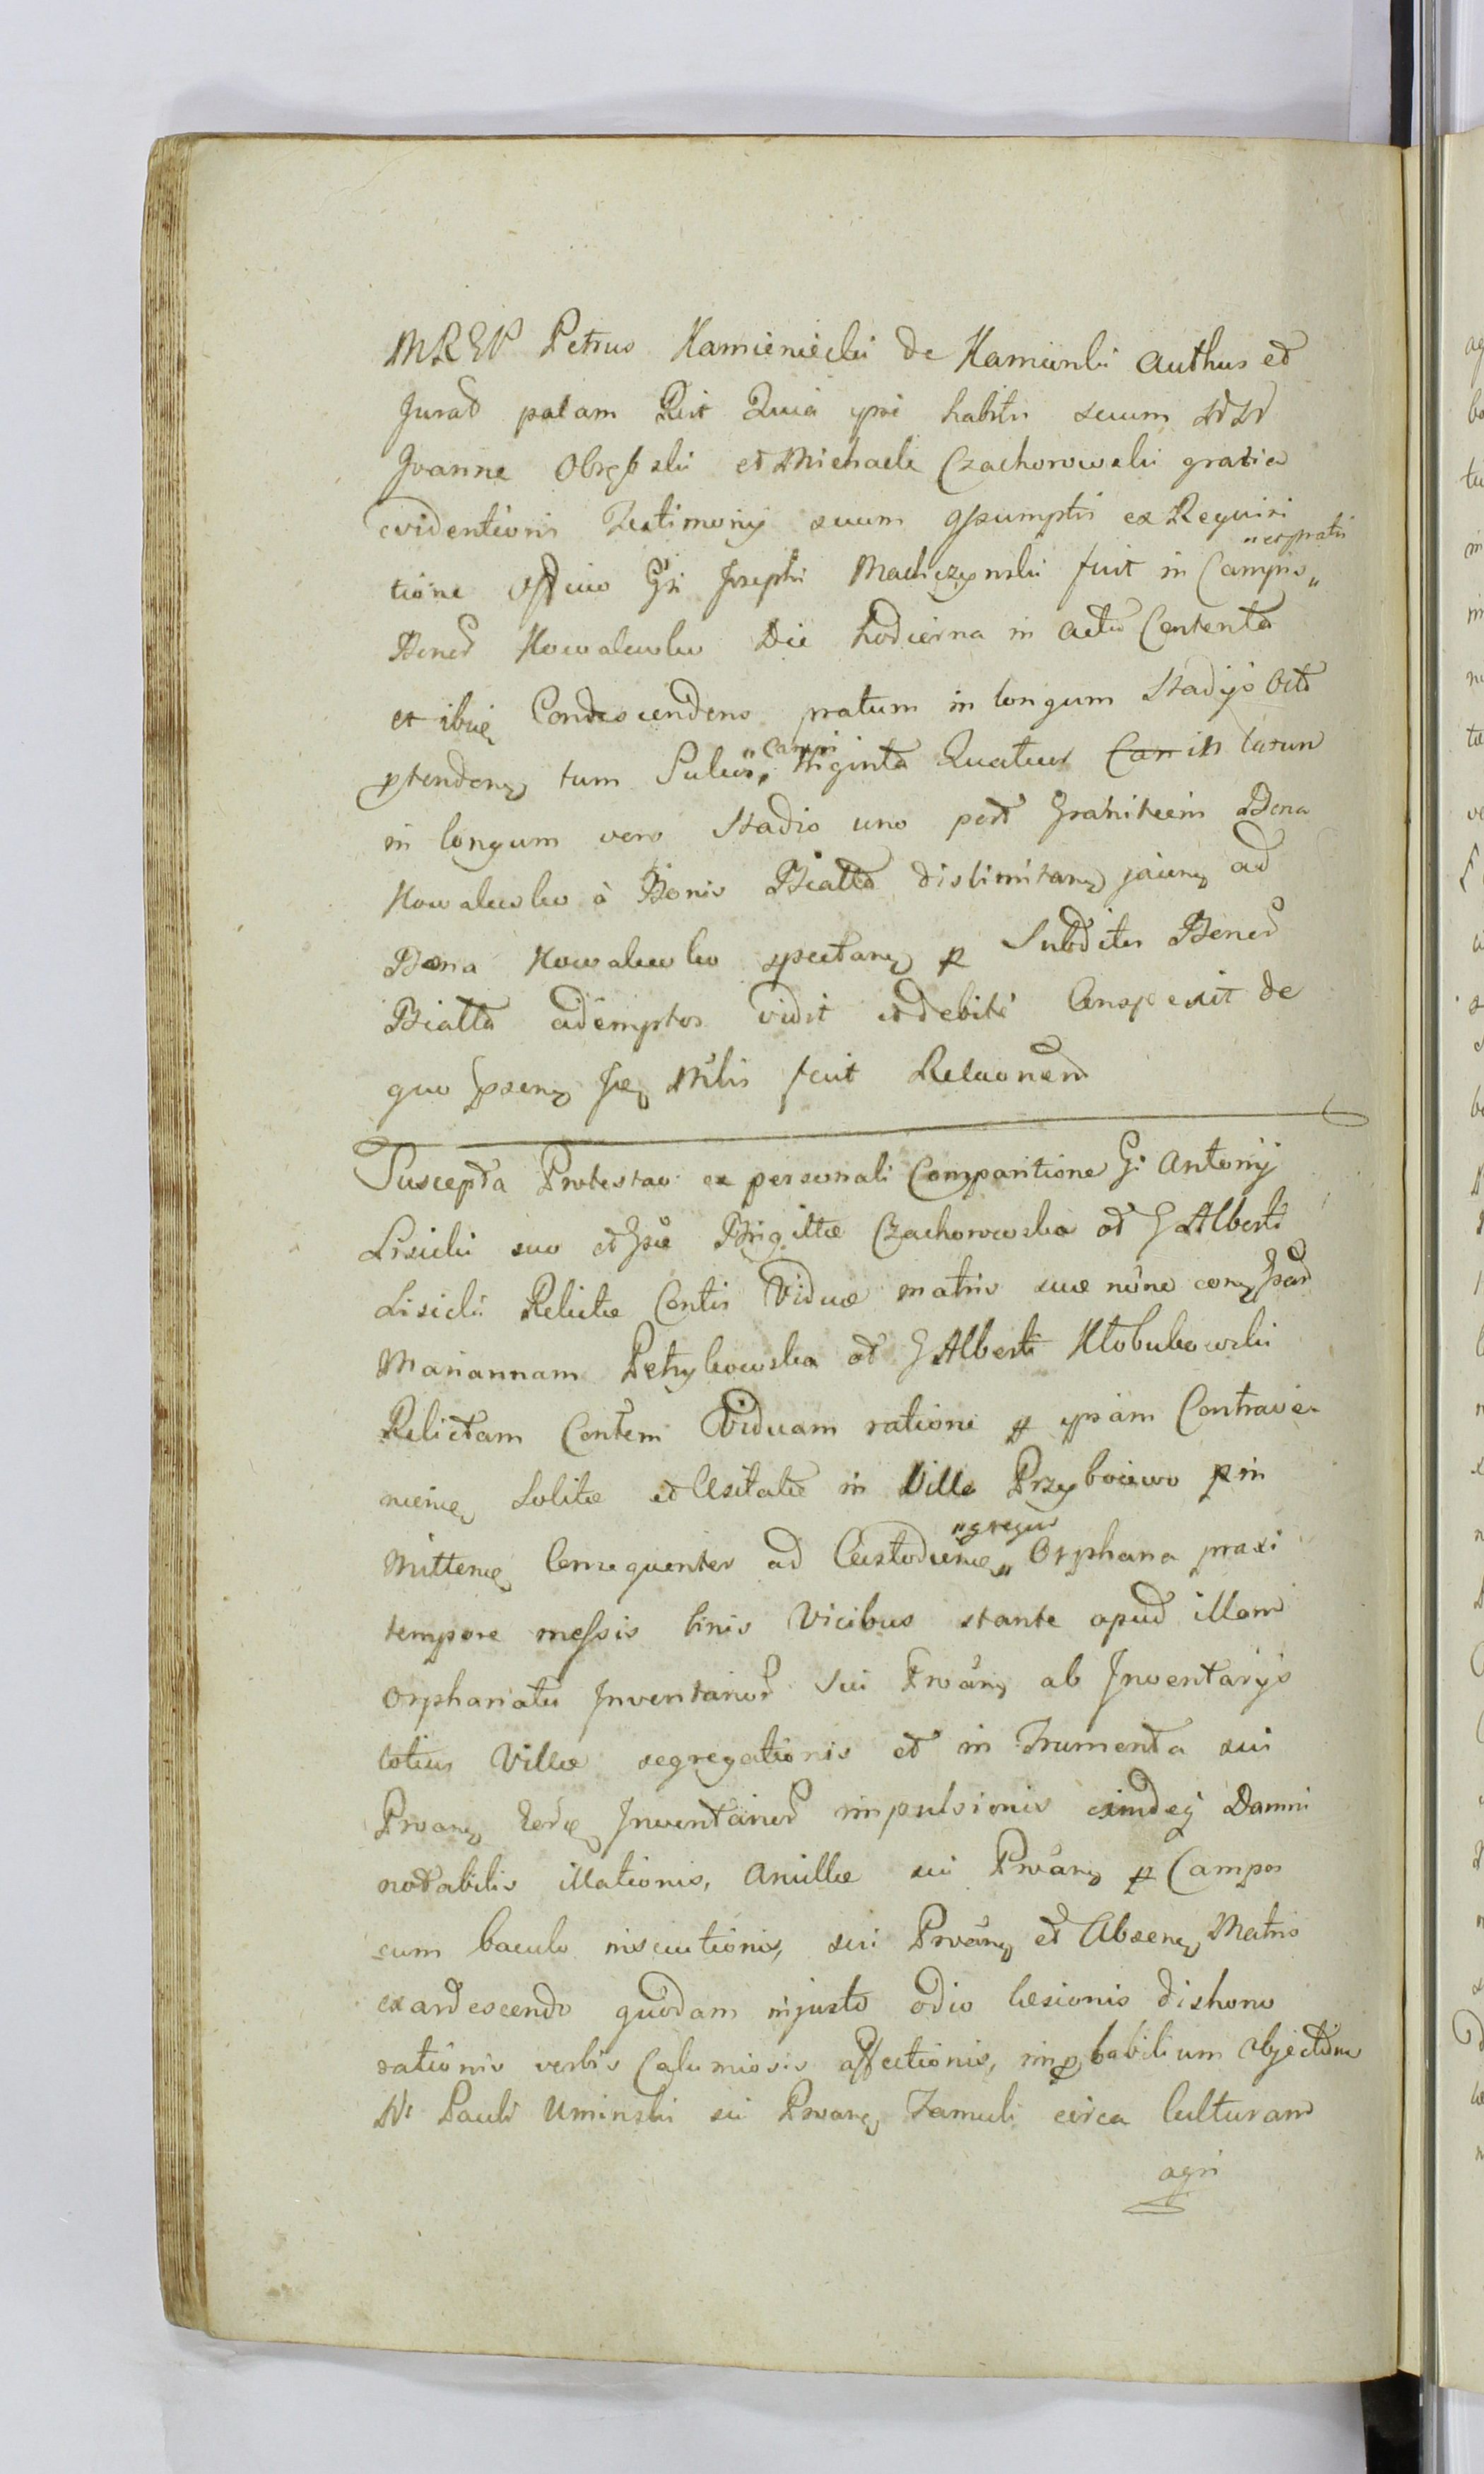 MREP Petrus Kamienieclii de Kamionki Authus et
Jurat palam Rit Quia ipse habitis secum NN
Joanne Obrębski et Michaele Czachorowski gratia
evidentioris Testimonij secum assumptis ex Requisi
tione officio Gsi Josephi Machczynski fuit in Campis „et pratis
Bonor Kowalewko Die hodierna in actu Contenta
et ibiq Condescendens pratum in longum Stadijs Octo
ptendeng tum Sulcos „Campi Triginta Quatuor Can in latum
in longum vero Stadio uno post Granitiem Bona
Kowalewko à Bonis Białła dislimitang jaceng ad
Bona Kowalewko spectang p Subditos Bonor
Białła ademptos vidit et debite Conspexit de
quo pseng Jseq Mtlis fecit Relaonem
Suscepta Protestao ex personali Comparitione G: Antonij
Lisicki suo et Gsæ Brigittæ Czachorowska ol G Alberti
Lisicki Relictæ Contis Viduæ matris suæ nōne cong Gsam
Mariannam Petrykowska ol G Alberti Kłobukowski
Relictam Contem Viduam ratione p ipsam Contrave
nienæ Solitæ et Usitatæ in Villa Przyborowo pin
mittenæ Consequenter ad Custodienæ „gregis Orphana praxi
tempore messis binis Vicibus stante apud illam
Orphanatu Inventarior Sui Prōang ab Inventarijs
totius Villæ segregationis et in Frumenta sui
Proang Ejusdæ Inventarior impulsionis eindeq Damni
notabilis illationis, Ancillæ sui Proang p Campos
cum baculo insecutionis, sui Proang et Absenq Matris
exardescendo quodam injusto odio læsionis dishono
rationis verbis Calumiosis affectionis, impbabilium objectionis
N: Pauli Uminski sui Proang Famuli circa Culturam
agri